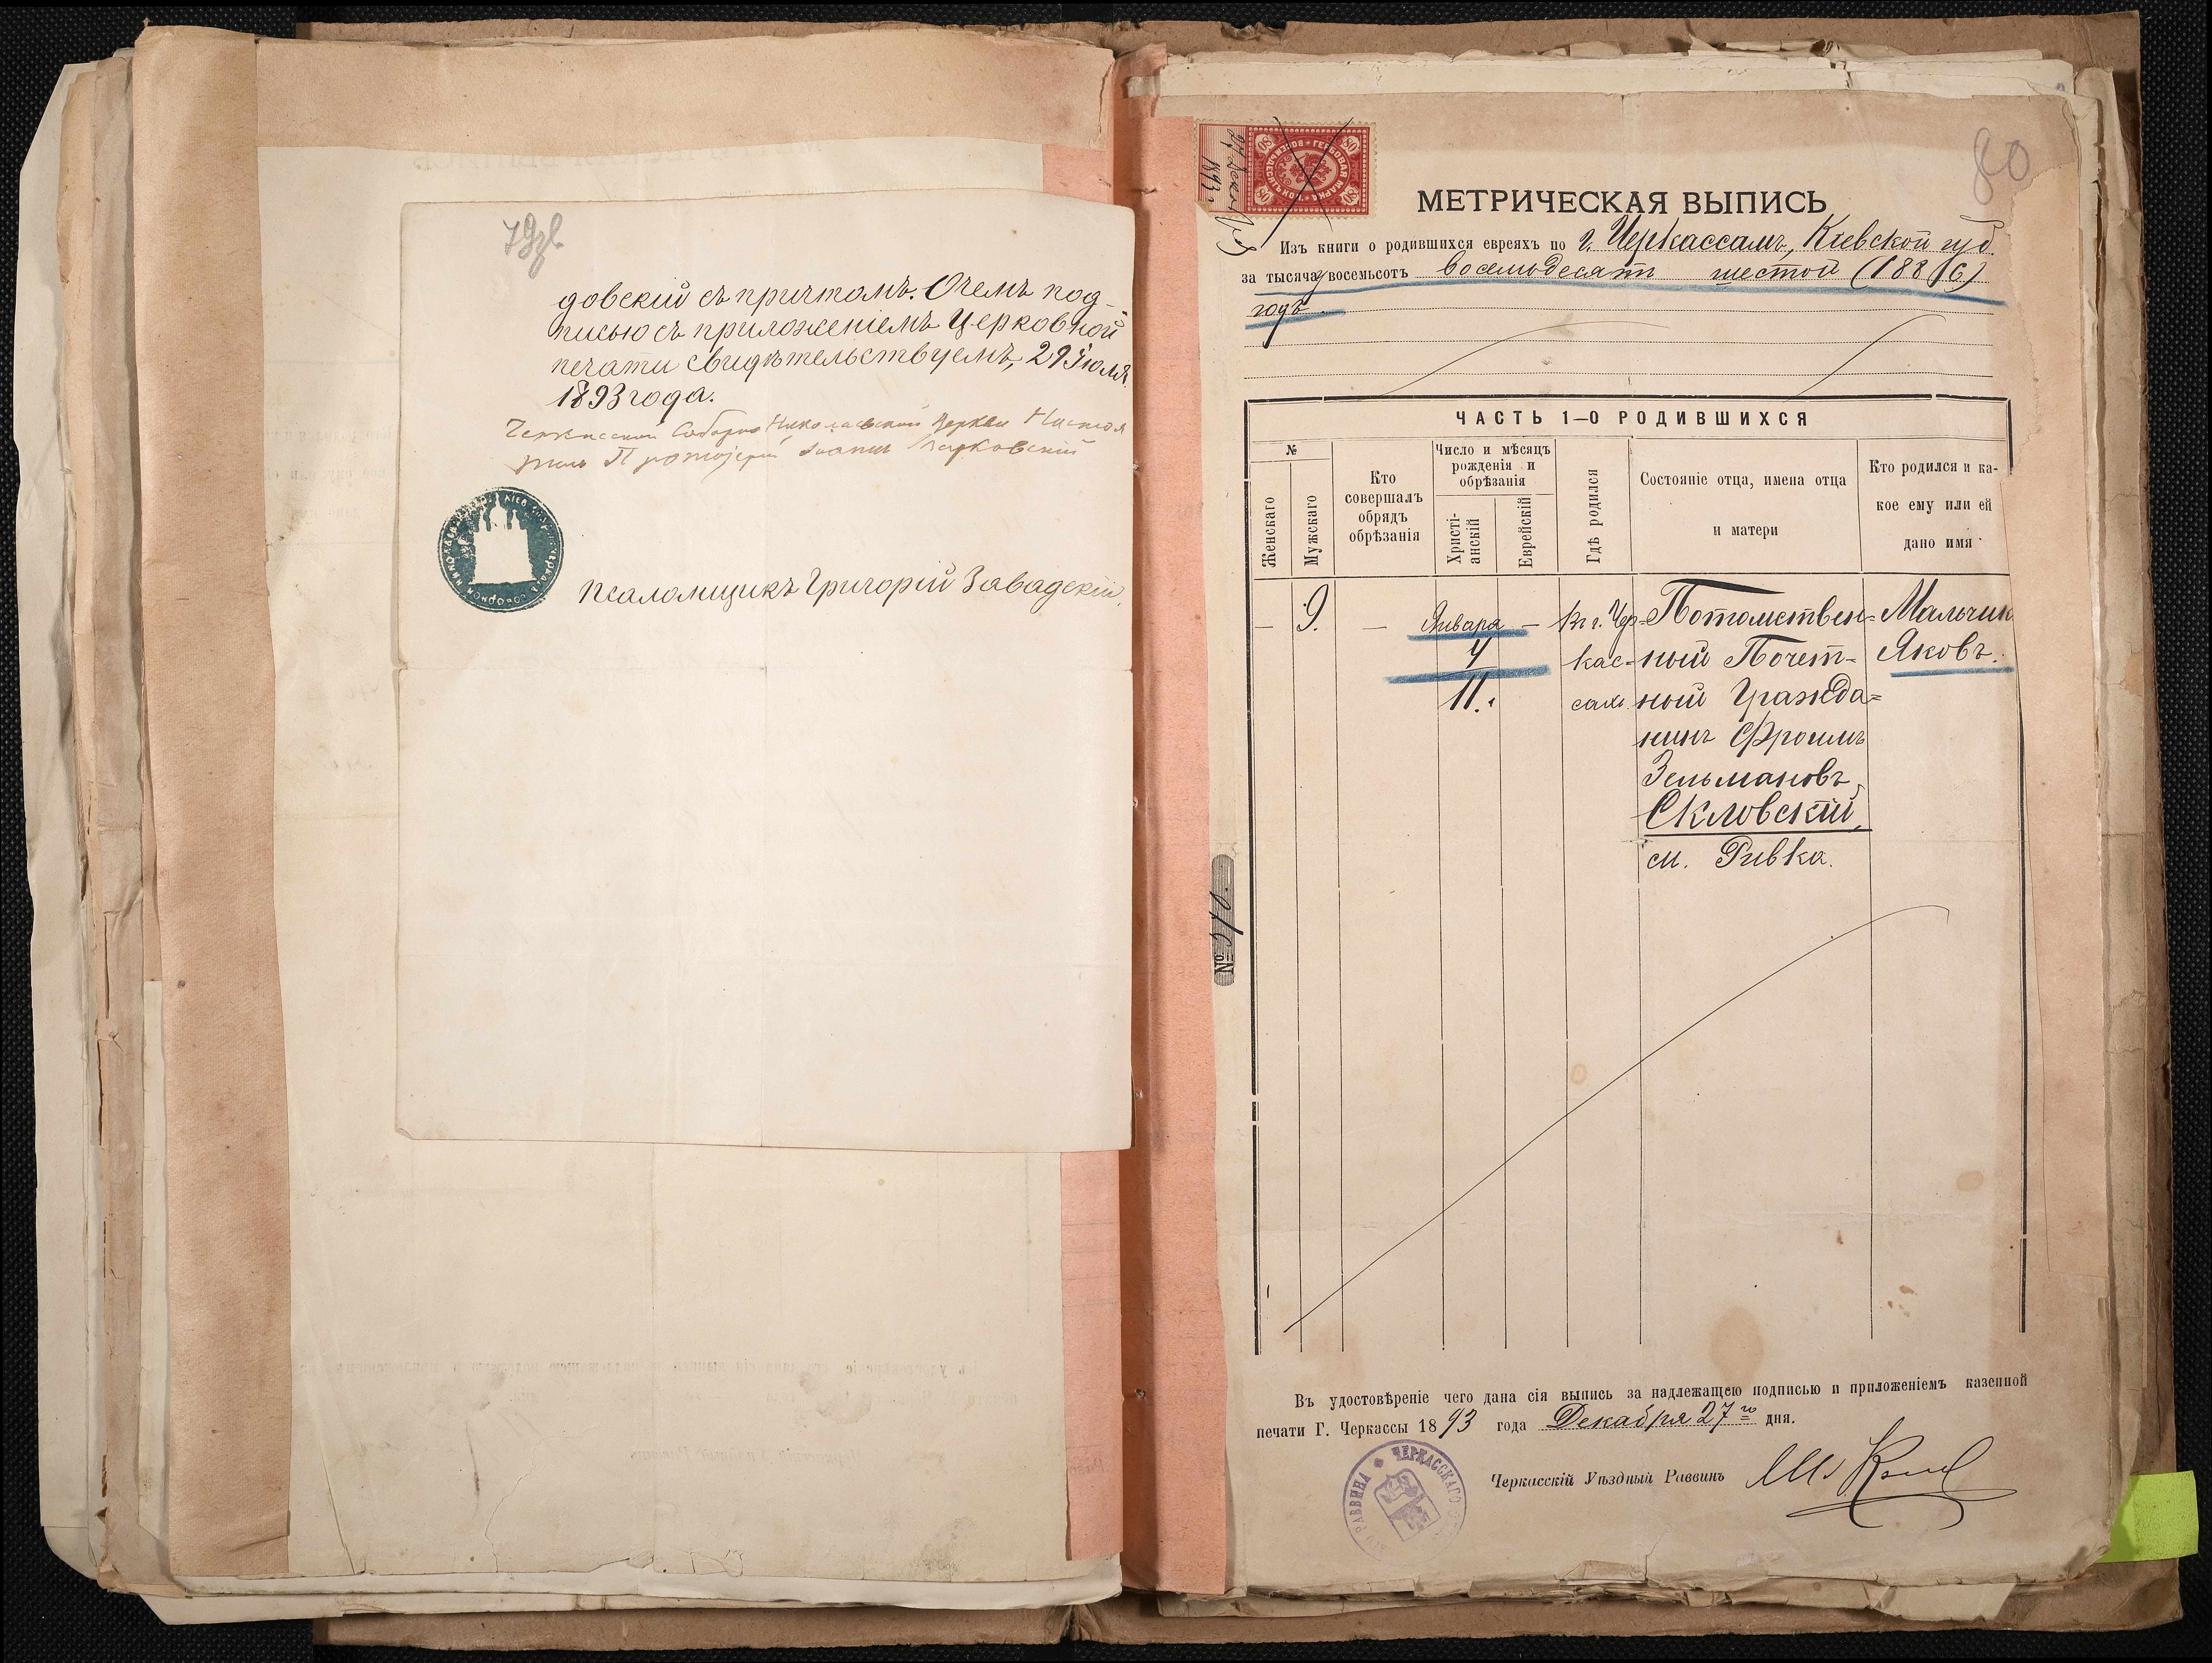 79
довскій съ причтомъ. О чемъ под-
писью съ приложеніемъ Церковной
печати свидѣтельствуемъ, 29 Іюля
1893 года.
Черкасской Соборно Николаевской Церкви Настоя
тель Протоіерей Іоаннъ
Псаломщикъ Григорій Завадскій.
80
ГЕРБОВАЯ МАРКА
ВОСЕМЬДЕСЯТЪ КОП.
80 80 80 80
27 Декаб.
1893 г.
МЕТРИЧЕСКАЯ ВЫПИСЬ
Изъ книги о родившихся евреяхъ по г. Черкассамъ, Кіевской губ.
за тысяча восемьсотъ восемьдесятъ шестой (1886)
годъ.
ЧАСТЬ 1-О РОДИВШИХСЯ
№
Женскаго
Мужскаго
Кто
совершалъ
обрядъ
обрѣзанія
Число и мѣсяцъ
рожденія и
обрѣзанія
Христі-
анскій
Еврейскій
Гдѣ родился
Состояніе отца, имена отца
и матери
Кто родился и ка-
кое ему или ей
дано имя
— 9. — Января — въ г. Чер- Потомствен- Мальчик
4 кас- ный Почет- Яковъ.
11. сахъ. ный Гражда-
нинъ Фроимъ
Зельмановъ
Скловскій,
м. Ривка.
Въ удостовѣреніе чего дана сія выпись за надлежащею подписью и приложеніемъ казенной
печати Г. Черкассы 1893 года Декабря 27 го дня.
ЧЕРКАССКАГО
РАВВИНА
Черкасскій Уѣздный Раввинъ